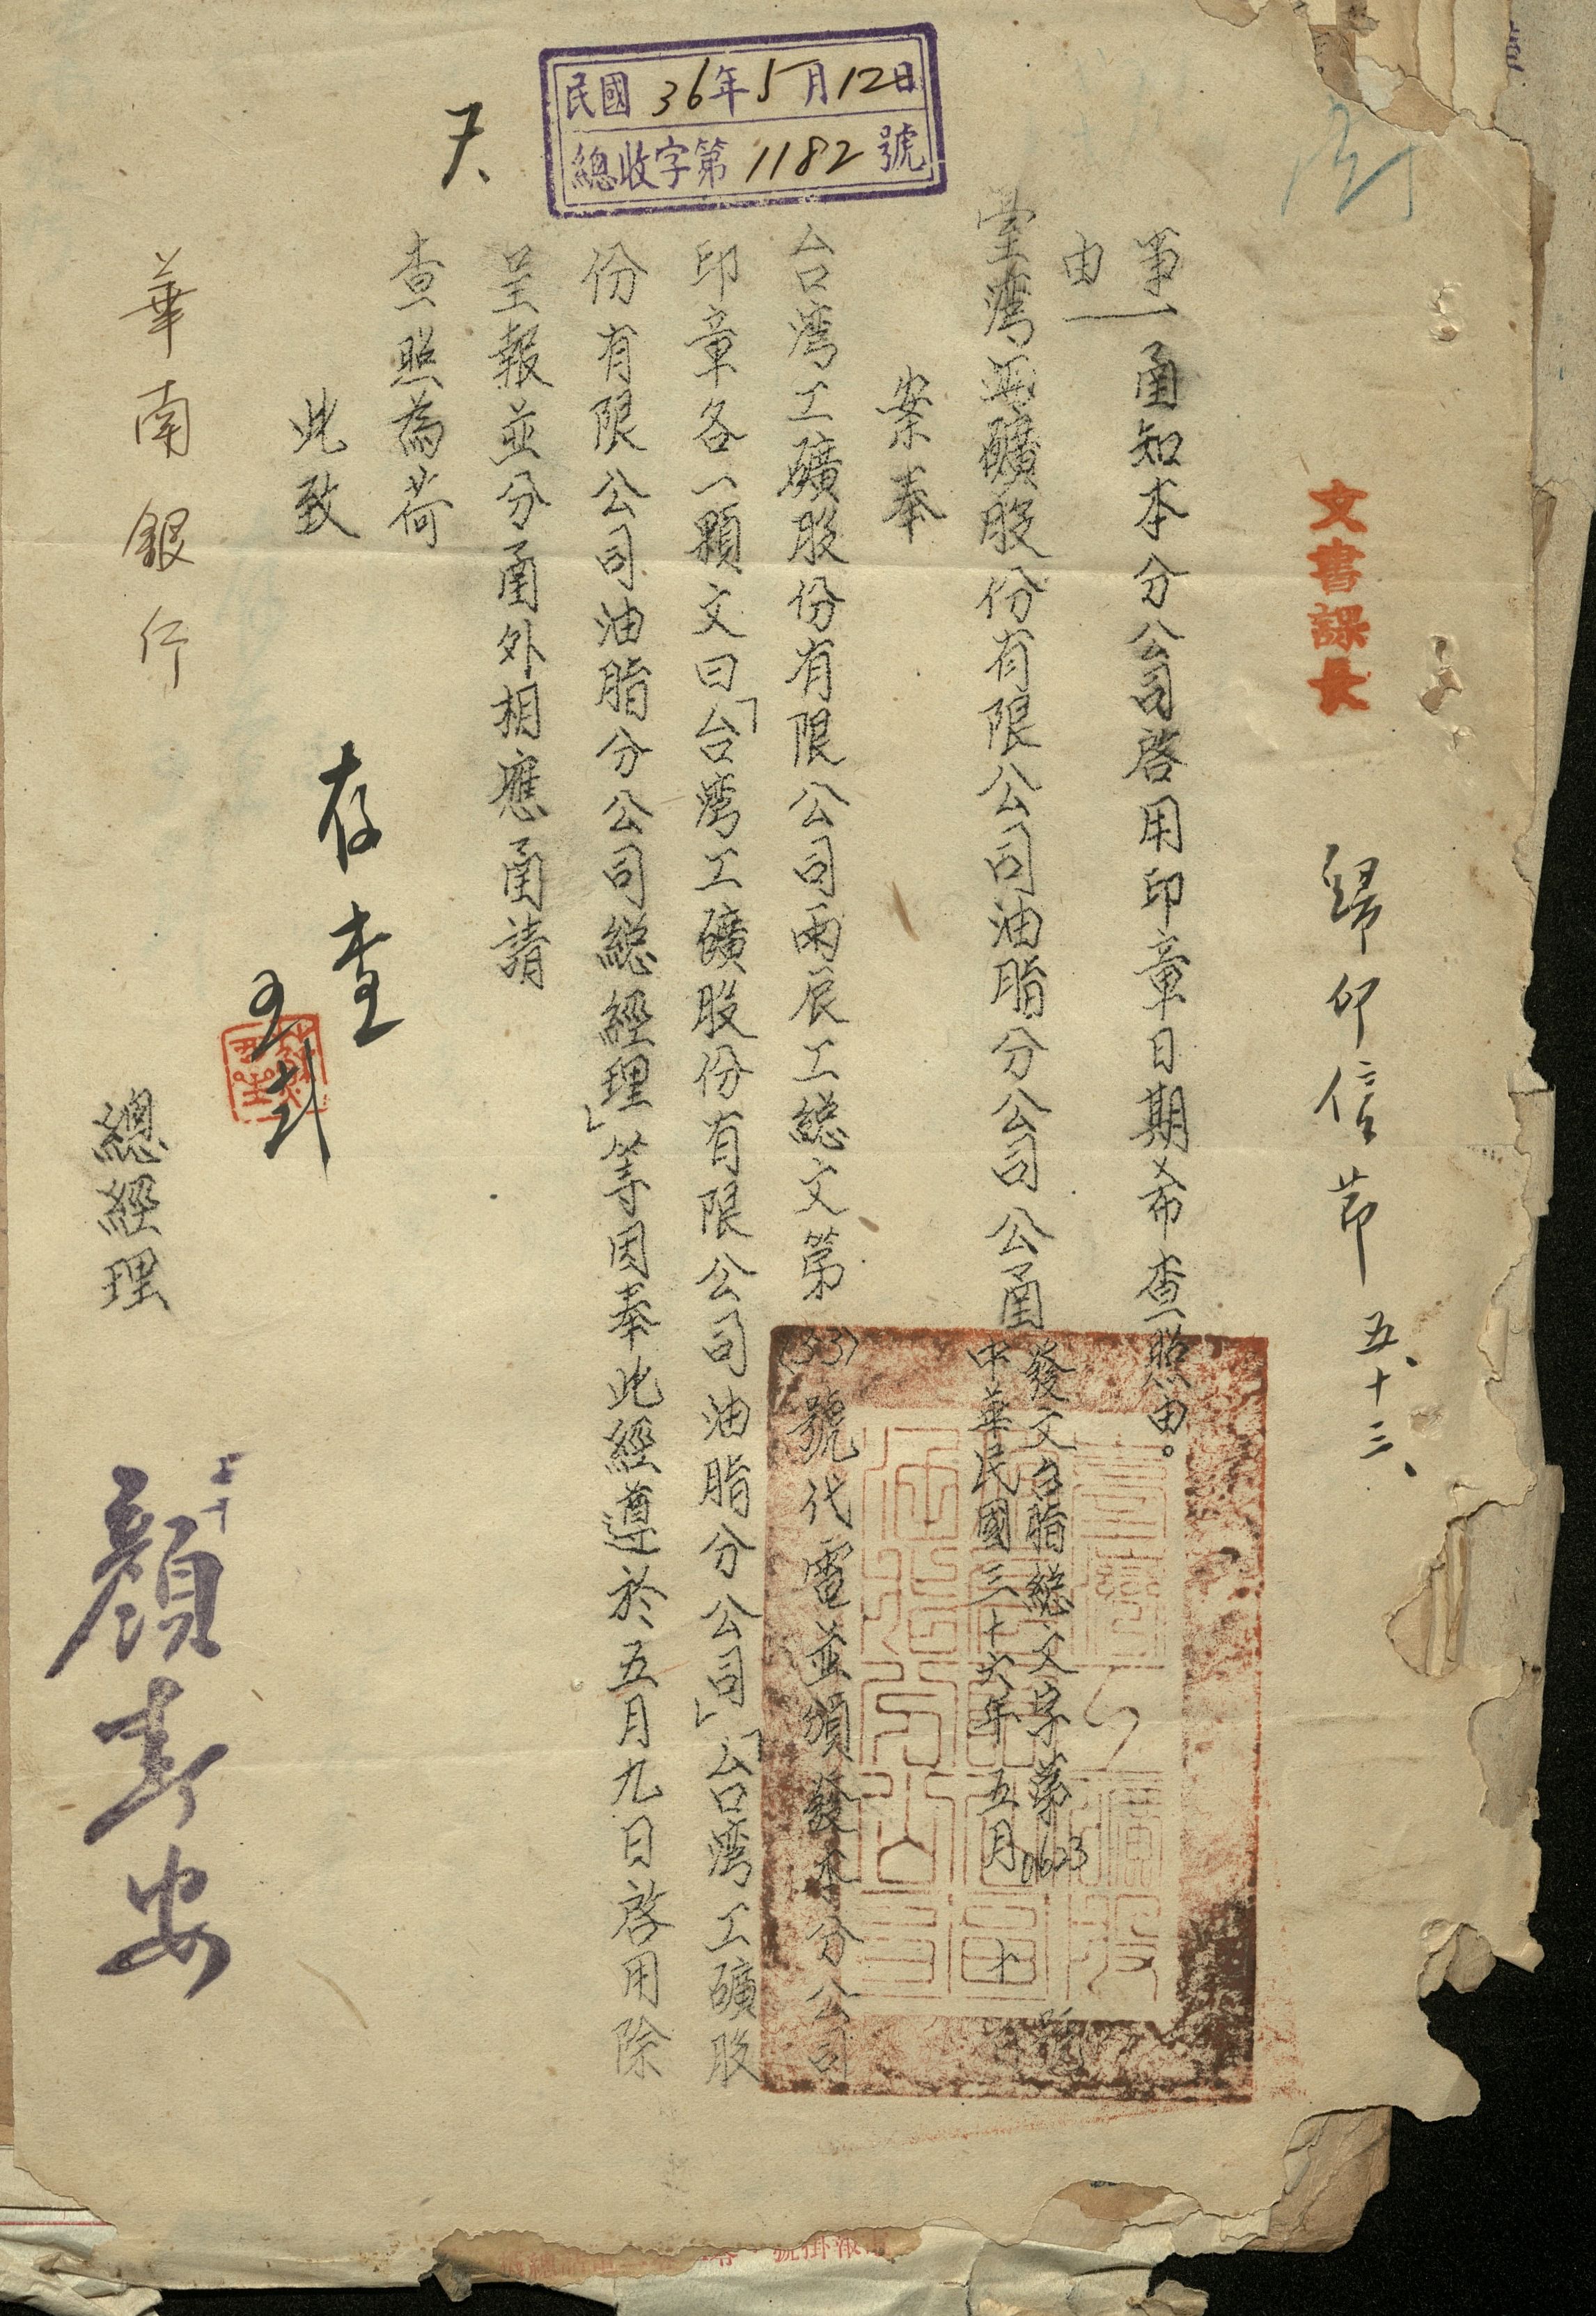 民國36年5月12日
總收字第1182號
文書課長
歸印信節 五、十三、
事由 一函知本分公司啓用印章日期希查照由。
臺灣工礦股份有限公司油脂分公司公函
發文台脂総文字第0623號
中華民國三十六年五月十
案奉
台湾工礦股份有限公司兩辰工総文第(33)號代電並頒發本分公司
印章各一顆文曰「台湾工礦股份有限公司油脂分公司」「台湾工礦股
份有限公司油脂分公司総經理」等因奉此經遵於五月九日啓用除
呈報並分函外相應函請
查照為荷
此致
華南銀行
存查
總經理
顏春安